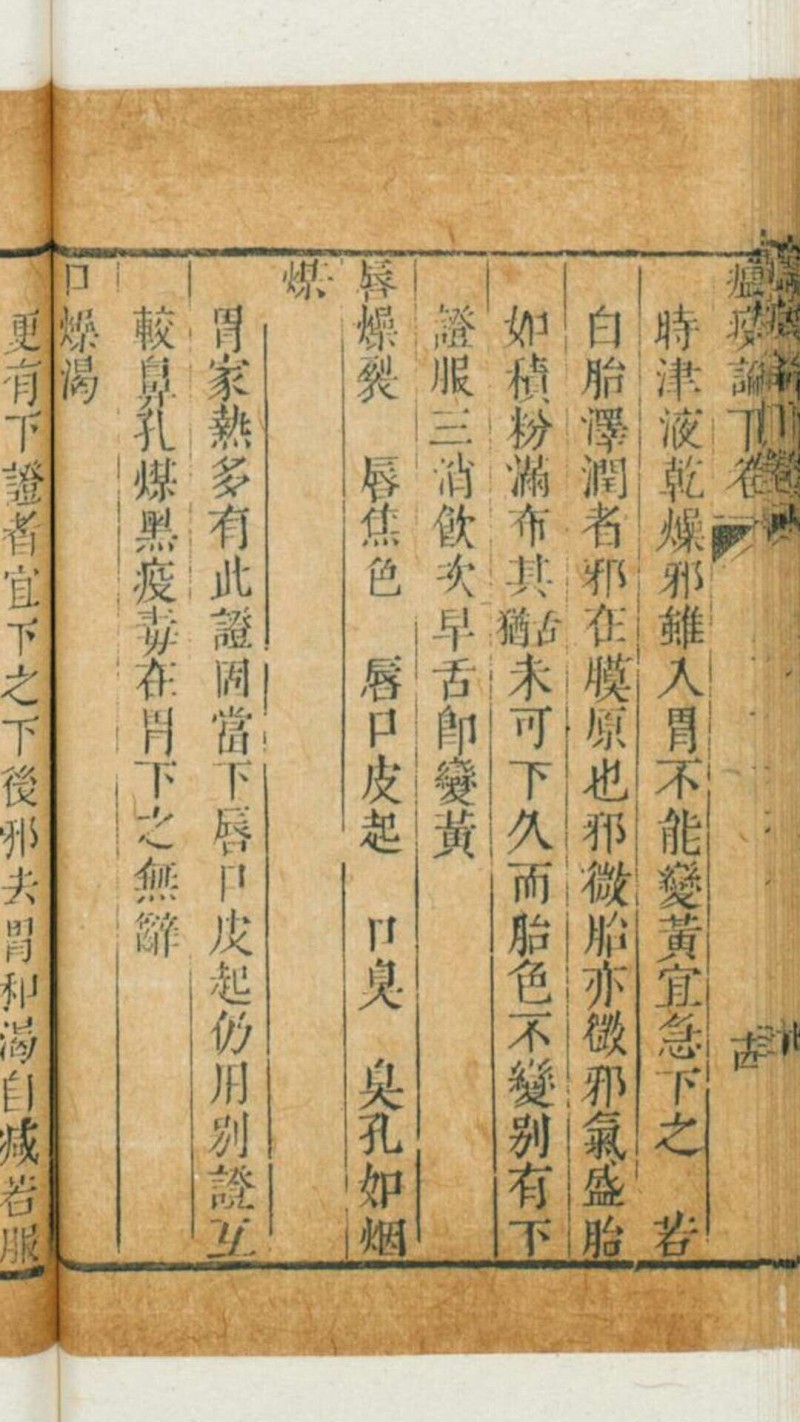 瘟疫論下卷
時津液乾燥邪雖入胃不能變黃宜急下之　若
白胎澤潤者邪在膜原也邪微胎亦微邪氣盛胎
如積粉滿布其猶古未可下久而胎色不變别有下
證服三消飲次早舌卽變黃
唇燥裂　唇焦色　唇口皮起　口臭　臭孔如烟
煤
胃家熱多有此證固當下唇口皮起仍用别證互
較鼻孔煤黑疫毒在胃下之無辭
口燥渴
更有下證者宜下之下後邪去胃和渴自减若服